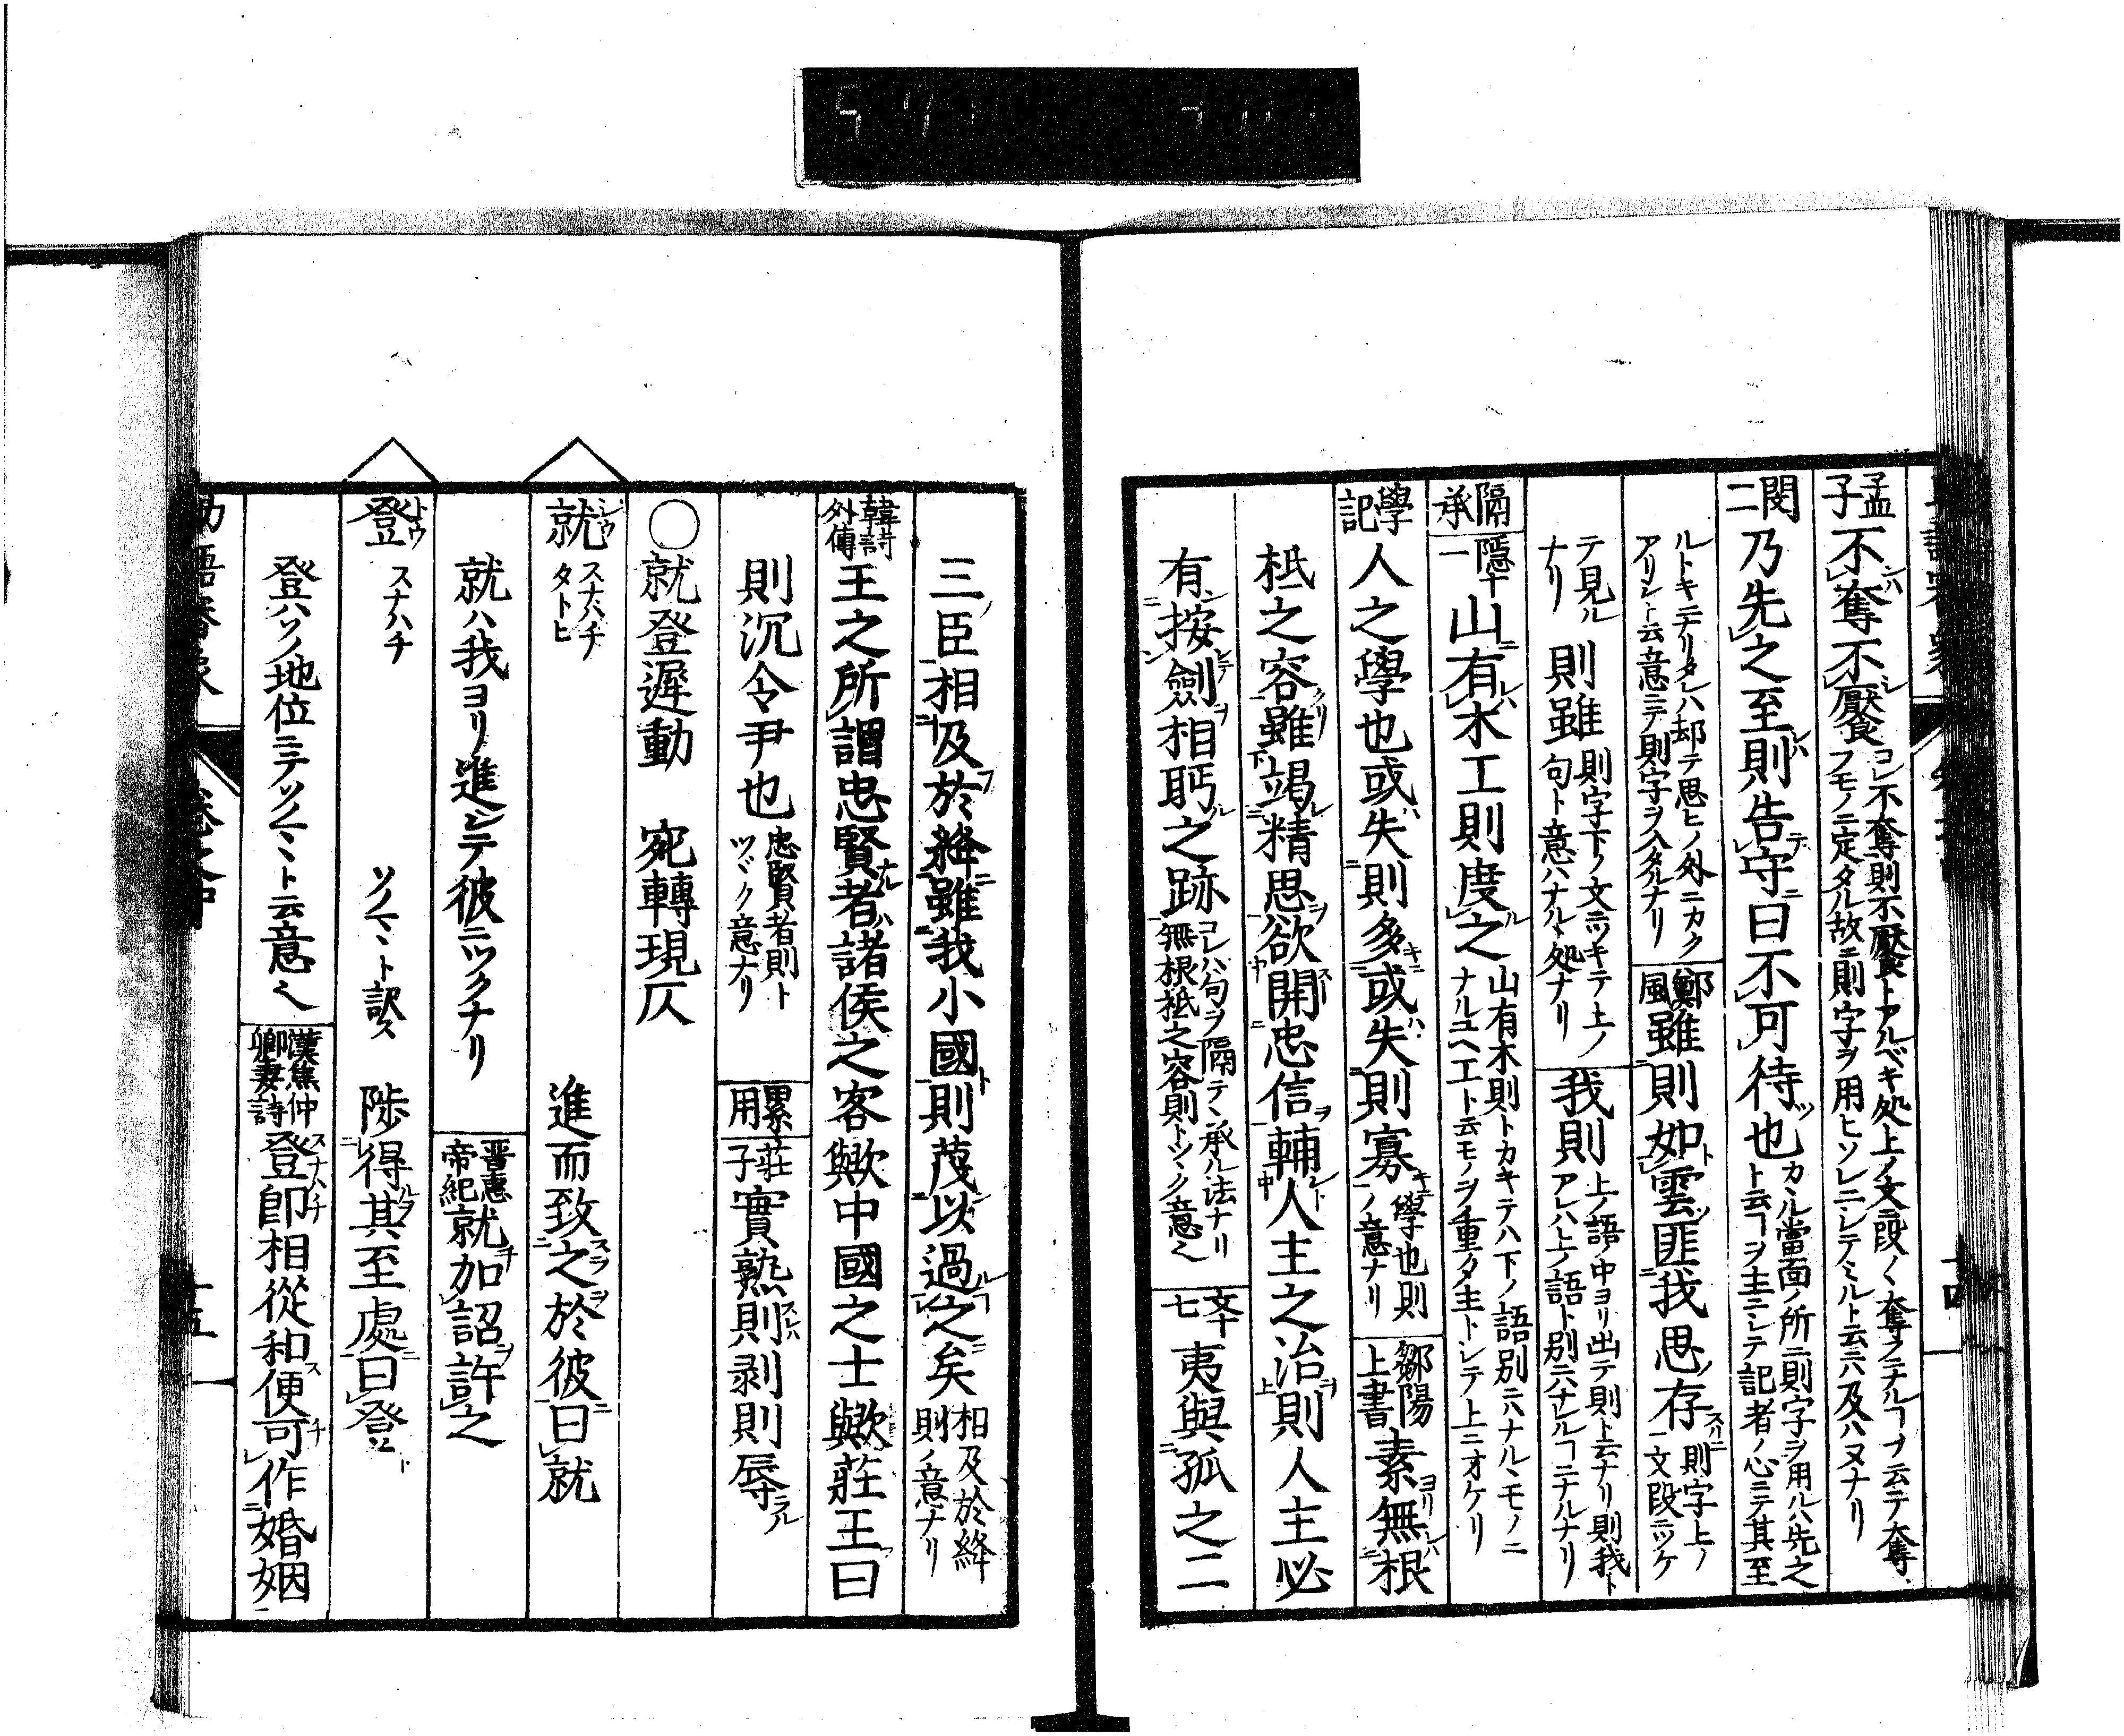 孟子 不奪不饜 コレ不奪則不饜トアルベキ処上ノ文段〱奪フニナルヿヲ云テ奪フモノニ定タル故ニ則字ヲ用ヒソレニシテミルト云ニハ及ハヌナリ
閔二 乃先之至則告守曰不可待也 カヽル當面ノ所ニ則字ヲ用ルハ先之ト云ヿヲ主ニシテ記者ノ心ニテ其至
ルトキニテリタレハ却テ思ヒノ外ニカクアリシト云意ニテ則字ヲ入タルナリ 鄭風 雖則如雲匪我思存 則字上ノ文段ニツケ
テ見ルナリ 則雖 則字下ノ文ニツキテ上ノ句ト意ハナルヽ処ナリ 我則 上ノ語ノ中ヨリ出テ則ト云ナリ則我トアレハ上ノ語ト別ニハナルヽヿニナルナリ
隔承 隱十一 山有木工則度之 山有木則トカキテハ下ノ語別ニハナルヽモノニナルユヘ工ト云モノヲ重タ主トシテ上ニオケリ
學記 人之學也或失則多或失則寡 學也則ノ意ナリ 鄒陽上書 素無根
柢之容雖竭精思欲開忠信輔人主之治則人主必
有按劍相眄之跡 コレハ句ヲ隔テヽ承ル法ナリ無根柢之容則トツヽク意ヘ 文十七 夷與孤之二
十四
三臣相及於絳雖我小國則蔑以過之矣 相及於絳則ノ意ナリ
韓詩外傳 王之所謂忠賢者諸侯之客歟中國之士歟莊王曰
則沉令尹也 忠賢者則トツヾク意ナリ 累用 莊子 實熟則剥則辱
○就登遲動 宛轉現仄
就 シウ スナハチ タトヒ 進而致之於彼曰就
就ハ我ヨリ進シテ彼ニツクナリ 晋惠帝紀 就加詔許之
登 トウ スナハチ ソノマヽト訳ス 陟得其至處曰登
登ハソノ地位ニテソノマヽト云意ヘ 漢焦仲卿妻詩 登即相從和便可作婚姻